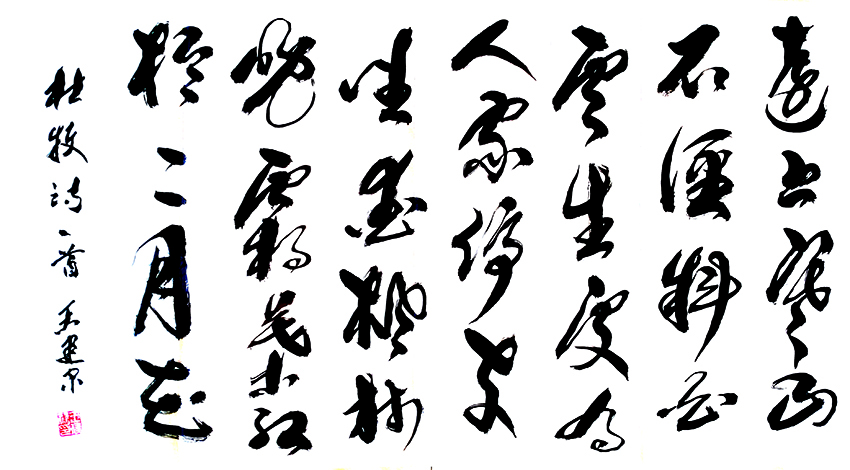 遠上寒山
石徑斜白
雲生處有
人家停車
坐愛楓林
晚霜葉紅
於二月花
杜牧詩一首